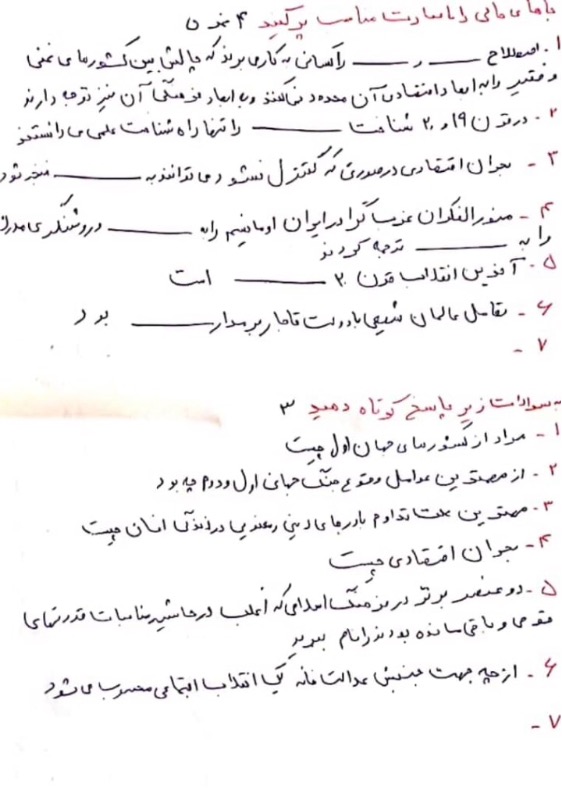 جاهای خالی را با عبارت مناسب پر کنید ۴ نمره
۱. اصطلاح ــــــ و ــــــ را کسانی به کار می برند که چالش بین کشورهای غنی
و فقیر را به ابعاد اقتصادی آن محدود نمی کنند و به ابعاد فرهنگی آن نیز توجه دارند
۲ - در قرن ۱۹ و ۲۰ شناخت ــــــ را تنها راه شناخت علمی می دانستند
۳ - بحران اقتصادی در صورتی که کنترل نشود می تواند به ــــــ منجر شود
۴ - منورالفکران غرب گرا در ایران اومانیسم را به ــــــ و روشنگری مدرن
را به ــــــ ترجمه کردند
۵. آخرین انقلاب قرن ۲۰ ــــــ است
۶ - تعامل عالمان شیعی با دولت قاجار بر مدار ــــــ بود
۷ -
به سوالات زیر پاسخ کوتاه دهید ۳
۱ - مراد از کشورهای جهان اول چیست
۲ - از مهمترین عوامل وقوع جنگ جهانی اول و دوم چه بود
۳ - مهمترین علت تداوم باورهای دینی و معنوی در زندگی انسان چیست
۴ - بحران اقتصادی چیست
۵ - دو عنصر برتر در فرهنگ اسلامی که اغلب در حاشیه مناسبات قدرتهای
قومی و باقی مانده بودند را نام ببرید
۶ - از چه جهت جنبش عدالتخانه یک انقلاب اجتماعی محسوب می شود
۷ -